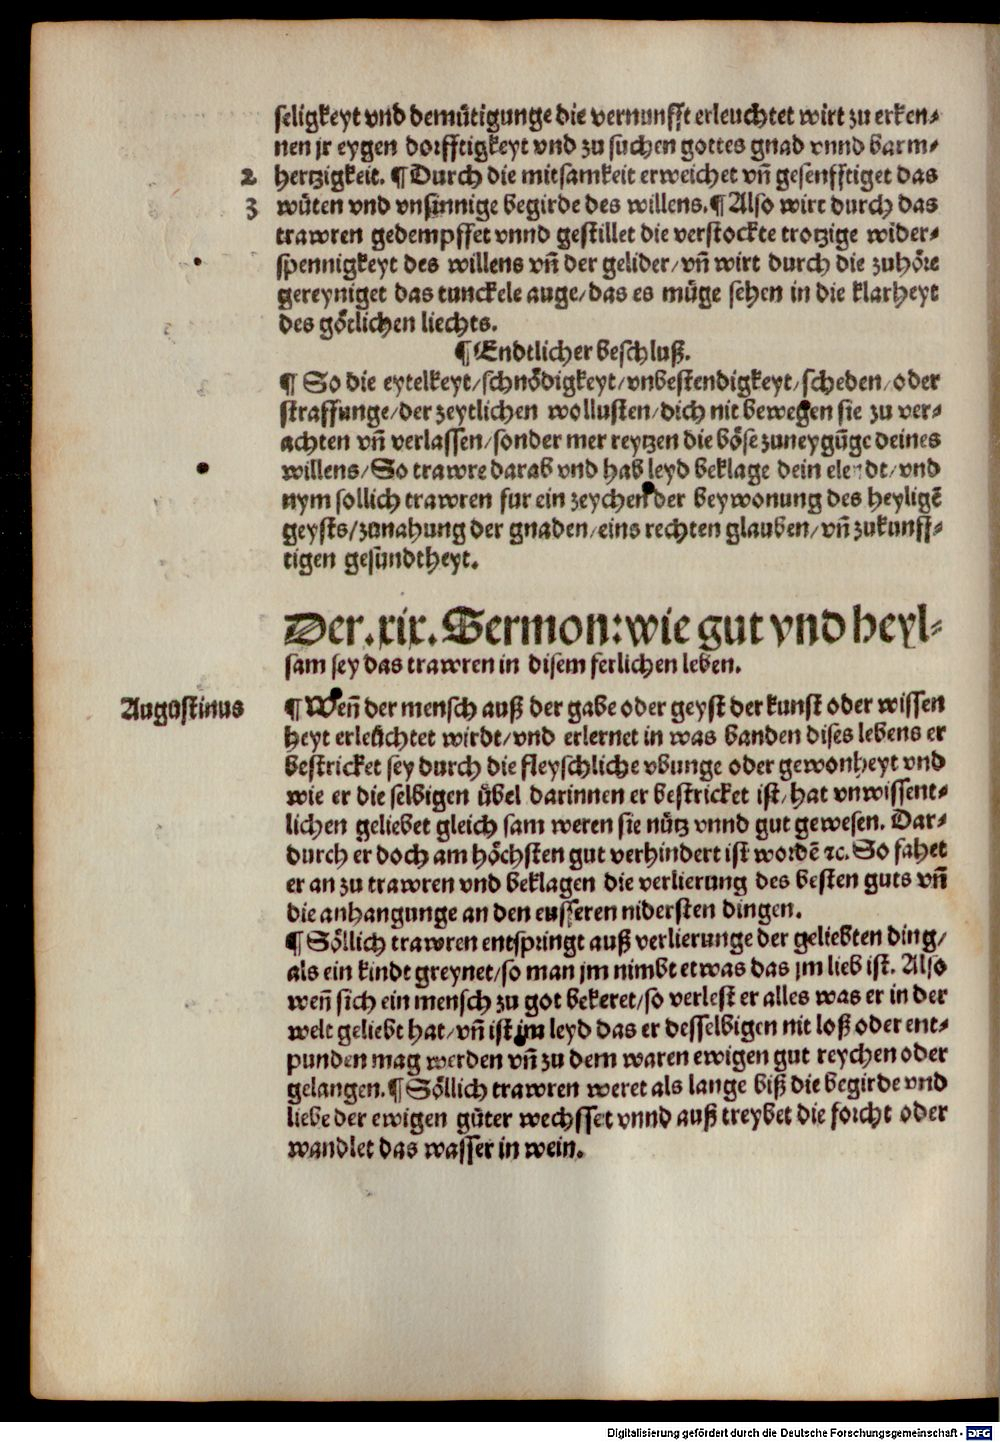 seligkeyt vnd demütigunge die vernunfft erleuchtet wirt zu erken⸗
nen jr eygen dorfftigkeyt vnd zu suchen gottes gnad vnnd barm⸗
2 hertzigkeit. ¶ Durch die mitsamkeit erweichet vn̄ gesenfftiget das
3 wüten vnd vnsinnige begirde des willens. ¶ Also wirt durch das
trawren gedempffet vnnd gestillet die verstockte trotzige wider⸗
spennigkeyt des willens vn̄ der gelider/ vn̄ wirt durch die zuhöre
gereyniget das tunckele auge/ das es müge sehen in die klarheyt
des götlichen liechts.
¶ Endtlicher beschluß.
¶ So die eytelkeyt/ schnödigkeyt/ vnbestendigkeyt/ scheden/ oder
straffunge/ der zeytlichen wollusten/ dich nit bewegen sie zu ver⸗
achten vn̄ verlassen/ sonder mer reytzen die böse zuneygūge deines
willens/ So trawre darab vnd hab leyd beklage dein elendt/ vnd
nym sollich trawren fur ein zeychen der beywonung des heyligē
geysts/ zunahung der gnaden/ eins rechten glauben/ vn̄ zukunff⸗
tigen gesundtheyt.
Der. xix. Sermon: wie gut vnd heyl⸗
sam sey das trawren in disem ferlichen leben.
Augustinus
¶ Wen̄ der mensch auß der gabe oder geyst der kunst oder wissen
heyt erleuchtet wirdt/ vnd erlernet in was banden dises lebens er
bestricket sey durch die fleyschliche vbunge oder gewonheyt vnd
wie er die selbigen übel darinnen er bestricket ist/ hat vnwissent⸗
lichen geliebet gleich sam weren sie nütz vnnd gut gewesen. Dar⸗
durch er doch am höchsten gut verhindert ist wordē ꝛc. So fahet
er an zu trawren vnd beklagen die verlierung des besten guts vn̄
die anhangunge an den eusseren nidersten dingen.
¶ Söllich trawren entspringt auß verlierunge der geliebten ding/
als ein kindt greynet/ so man jm nimbt etwas das jm lieb ist. Also
wen̄ sich ein mensch zu got bekeret/ so verlest er alles was er in der
welt geliebt hat/ vn̄ ist jm leyd das er desselbigen nit loß oder ent⸗
punden mag werden vn̄ zu dem waren ewigen gut reychen oder
gelangen. ¶ Söllich trawren weret als lange biß die begirde vnd
liebe der ewigen güter wechsset vnnd auß treybet die forcht oder
wandlet das wasser in wein.
Digitalisierung gefördert durch die Deutsche Forschungsgemeinschaft - DFG